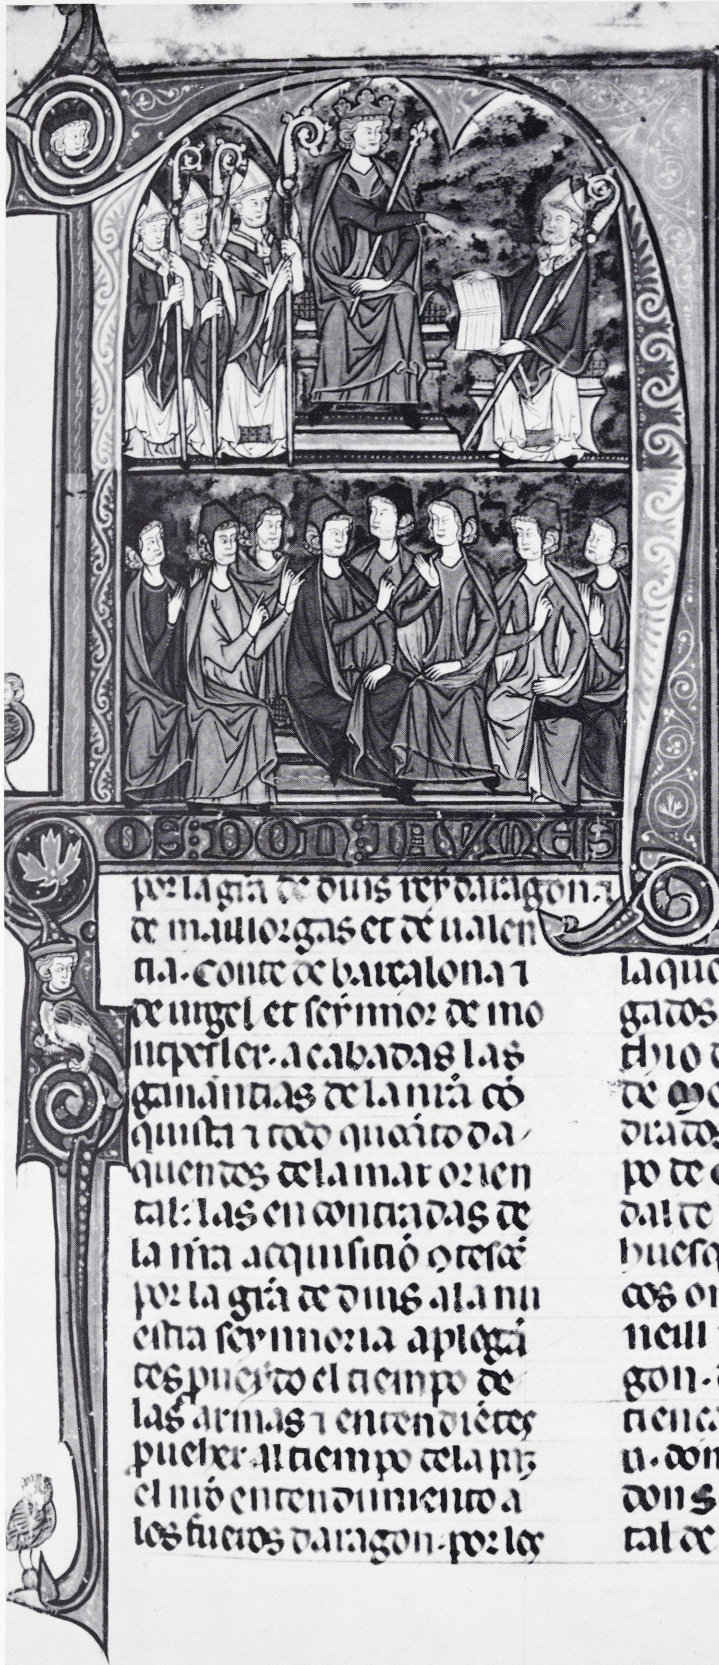 OS: DON: IAVMES
por la gr̃a de dius rey daragon ⁊
de mallorgas et de ualen
tia. Conte de barçalona ⁊
de urgel et seynnor de mo
ntpesler. acabadas las
ganantias de la nr̃a cõ
quista ⁊ todo quanto da
quen dos de la mar orien
tal: las encontradas de
la nr̃a acquisitiõ
por la gr̃a de dius a la nu
estra seynnoria aplegã
tes puesto el tiempo de
las armas ⁊ entendiẽtes
prueher. Al tiempo de la paz
el nr̃o entendimiento a
los fueros daragon. por los
la que
gados
chio d
de Mo
drados
po de
dal de
huesq
cos o
neill
gon.
tien
n. don
don S
tal de